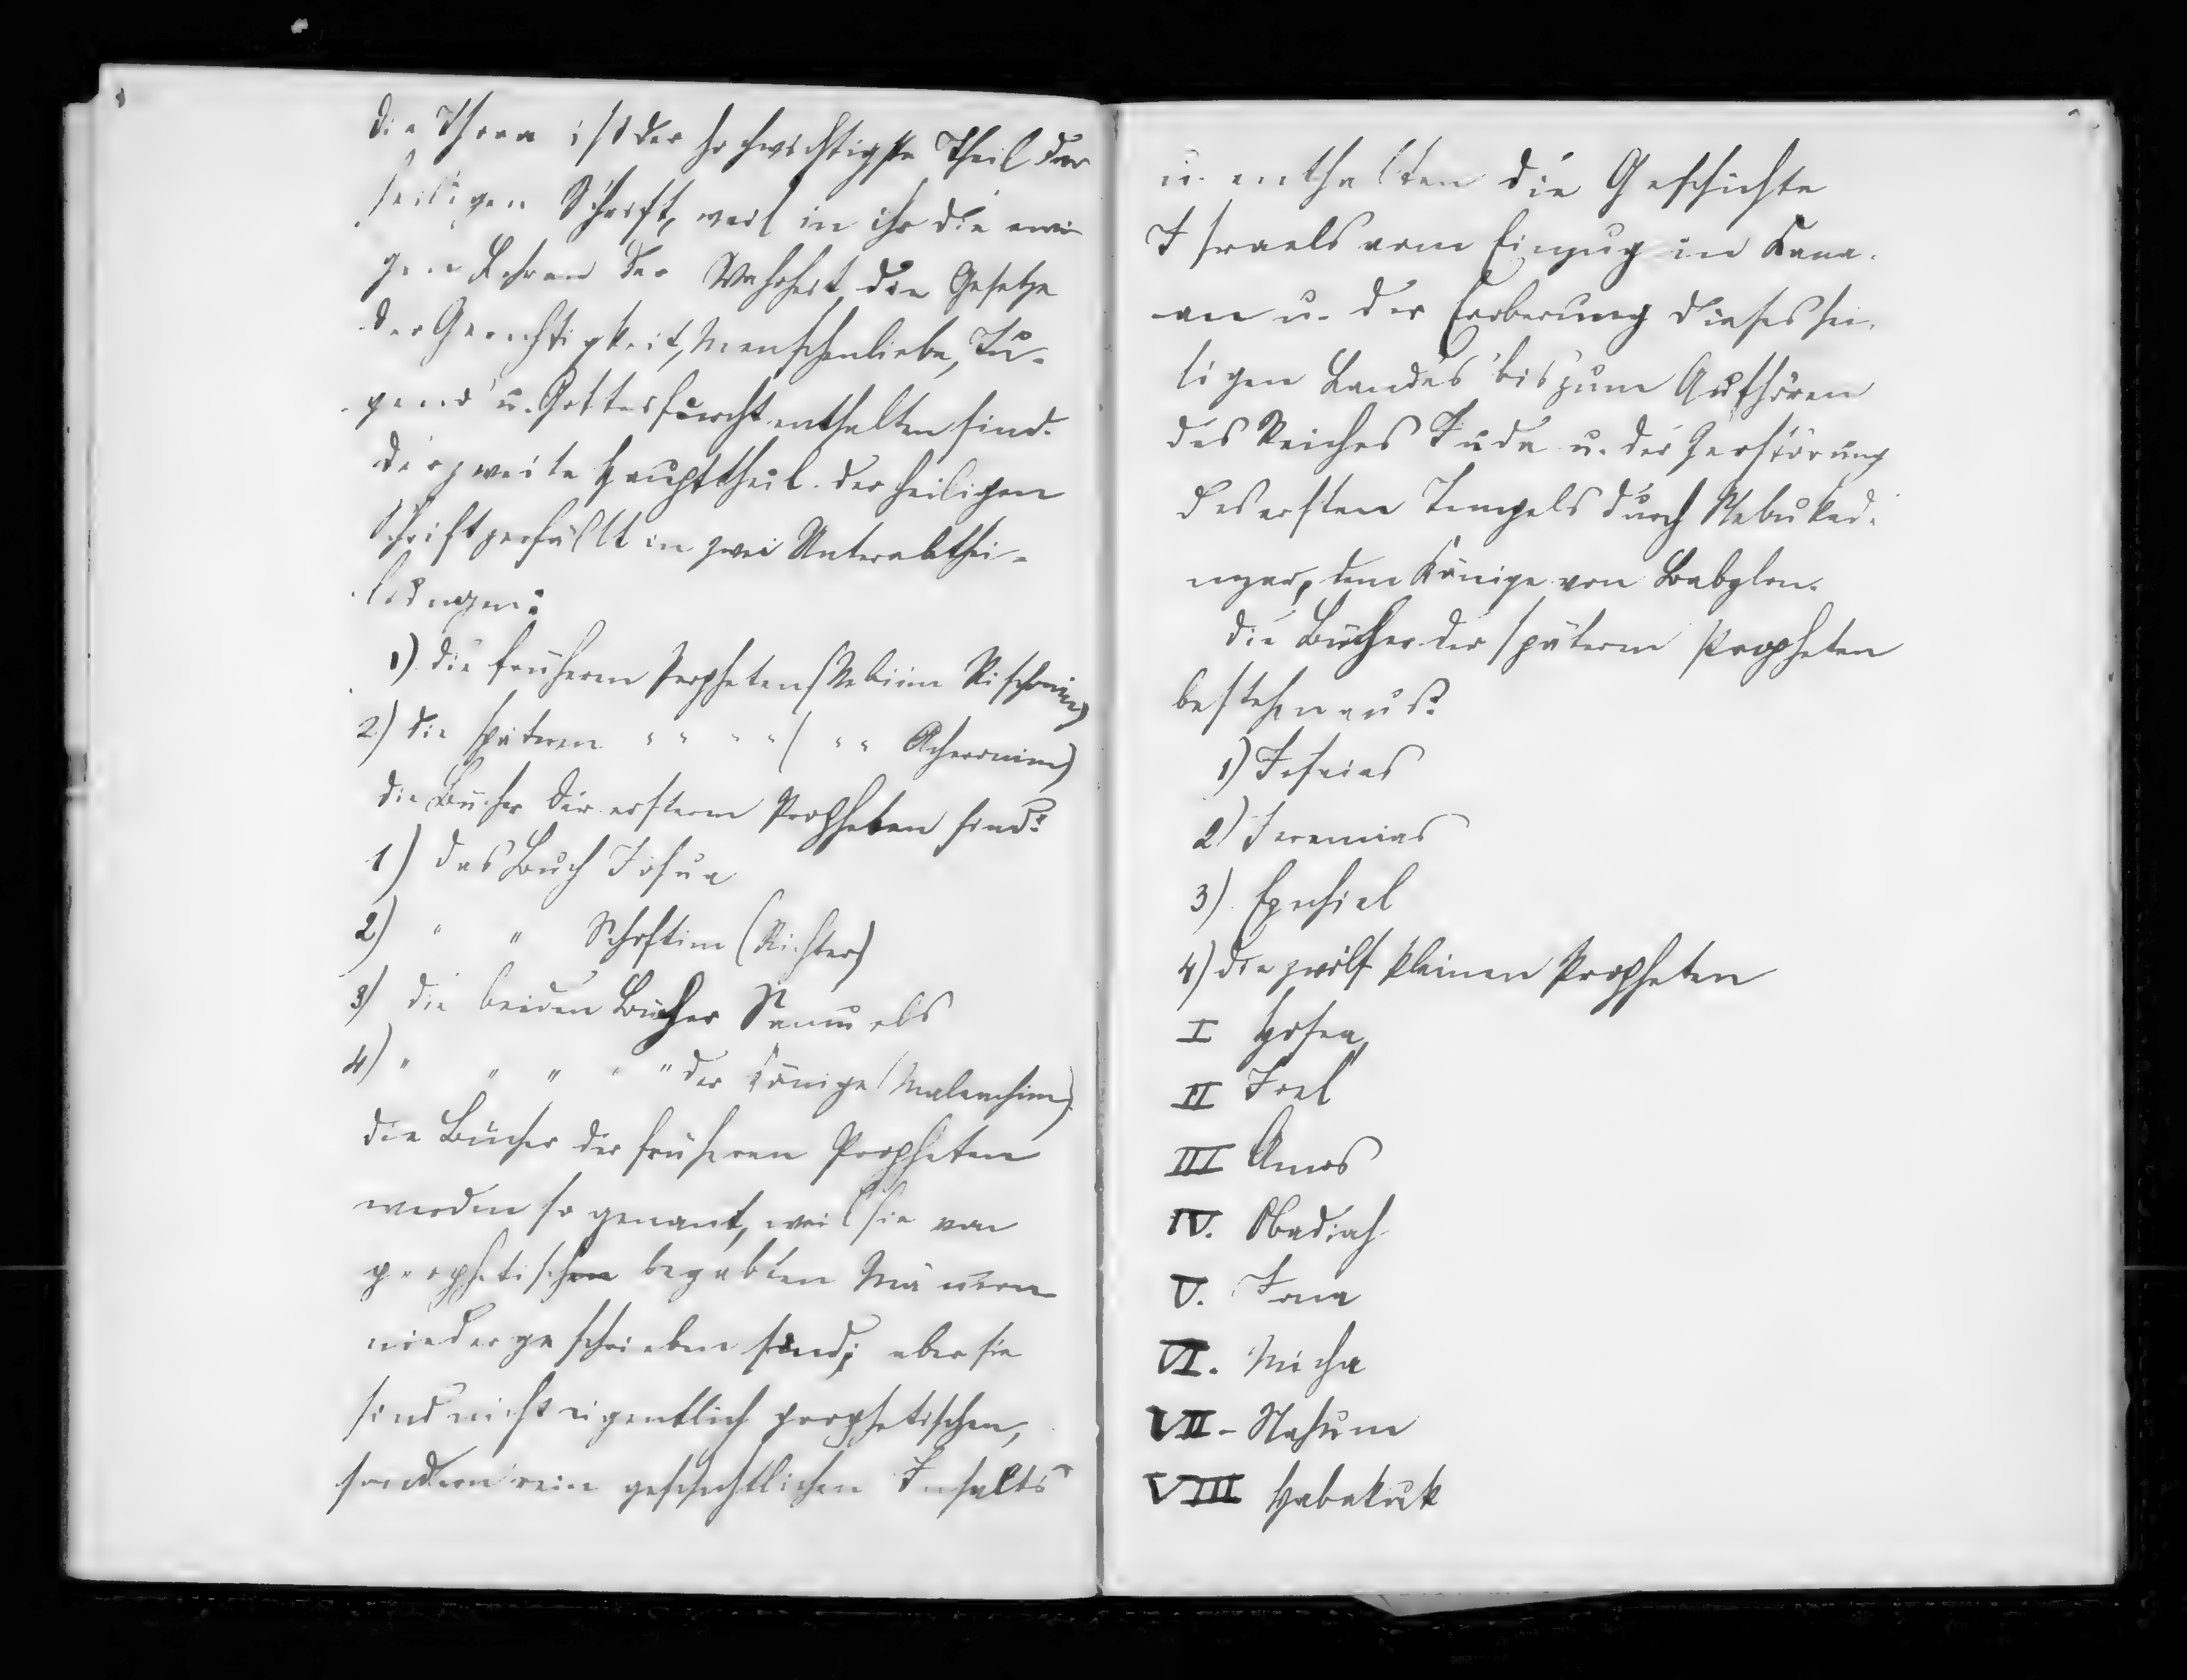 Die Thora ist der hochwichtigste Theil der
heiligen Schrift, weil in ihr die ewi
gen Lehren der Wahrheit die Gesetze
der Gerechtigkeit, Menschenliebe, Tu-
gend u. Gottesfurcht enthalten sind.
Der zweite Haupttheil der heiligen
Schrift zerfällt in zwei Unterabthei-
lungen:
1) die früheren Propheten (Nebiim Rischonim)
2) die späteren " " " " ( " " Acheronim)
Die Bücher der ersteren Propheten sind:
1) das Buch Josua
2) " " Schoftim (Richter)
3) die beiden Bücher Samuels
4) " " " " " der Könige (Malenchim)
Die Bücher der früheren Propheten
werden so genant, weil sie von
prophetischen begabten Männern
niedergeschrieben sind; aber sie
sind nicht eigentlich prophetischen,
sondern rein geschichtlichen Inhalts
u. enthalten die Geschichte
Israels vom Einzug in Kana-
an u. der Eroberung dieses hei-
ligen Landes bis zum Aufhören
des Reiches Juda u. der Zerstörung
des ersten Tempels durch Nebukad-
nezar, dem Könige von Babylon.
Die Bücher der späteren Propheten
bestehen aus:
1) Jesaias
2) Jeremias
3) Ezechiel
4) die zwölf kleinen Propheten
I Hosea,
II Joel
III Amos
IV. Obadiah
V. Jona
VI. Micha
VII- Nahum
VIII Habakuk